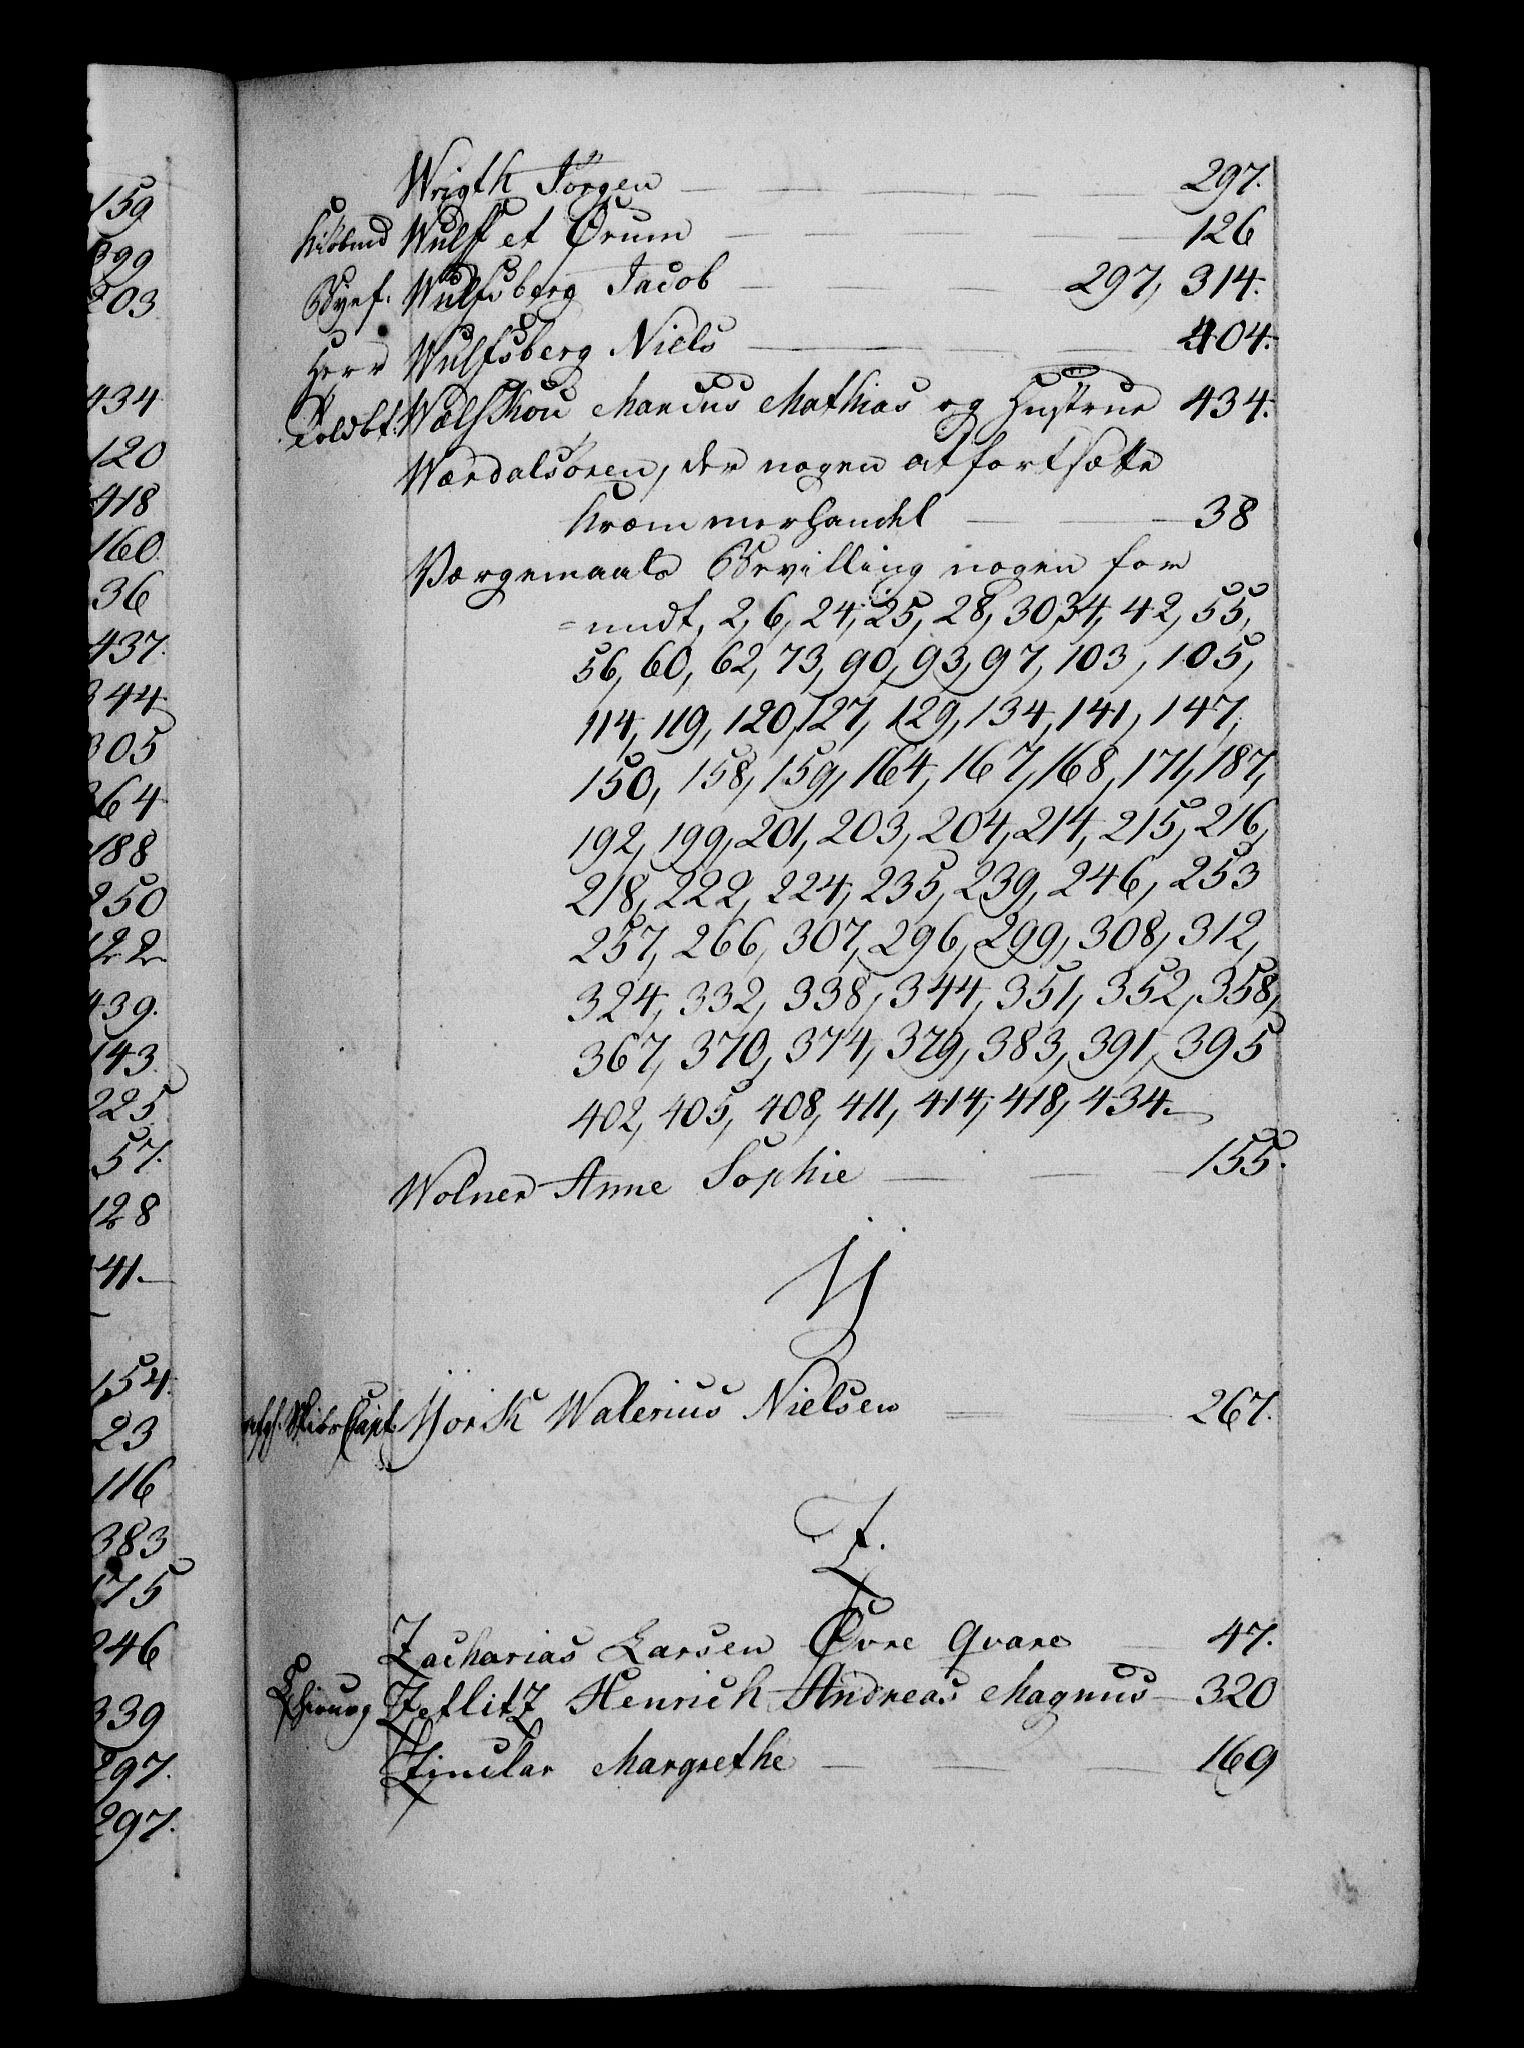 Wrigth Jörgen 297.
Kiöbmd Wulff et Örum 126
Byef. Wulfsberg Jacob 297, 314.
Herr Wulfsberg Niels 404.
Toldbt. Wælskou Mandus Mathias og Hustrue 434.
Wærdalsören, der nogen at fortsætte
Kræmmerhandel 38
Værgemaals Bevilling nogen for
=undt, 2, 6, 24, 25, 28, 30, 34, 42, 55,
56, 60, 62, 73, 90, 93, 97, 103, 105,
114, 119, 120, 127, 129, 134, 141, 147,
150, 158, 159, 164, 167, 168, 171, 187,
192, 199, 201, 203, 204, 214, 215, 216,
218, 222, 224, 235, 239, 246, 253
257, 266, 307, 296, 299, 308, 312,
324, 332, 338, 344, 351, 352, 358,
367, 370, 374, 379, 383, 391, 395
402, 405, 408, 411, 414, 418, 434.
Wolner Anne Sophie 155.
Y
Skibs Capt. Yorck Walerius Nielsen 267.
Z.
Zacharias Larsen Övre Qvare 47.
Chirurg Zetlitz Henrich Andreas Magnus 320
Zinclar Margrethe 169
159
399
203
434
120
418
160
36
437.
344
305
364
188
250
122
439.
143
225
57.
128
41.
154.
23
116
383
175
246
339
297.
297.